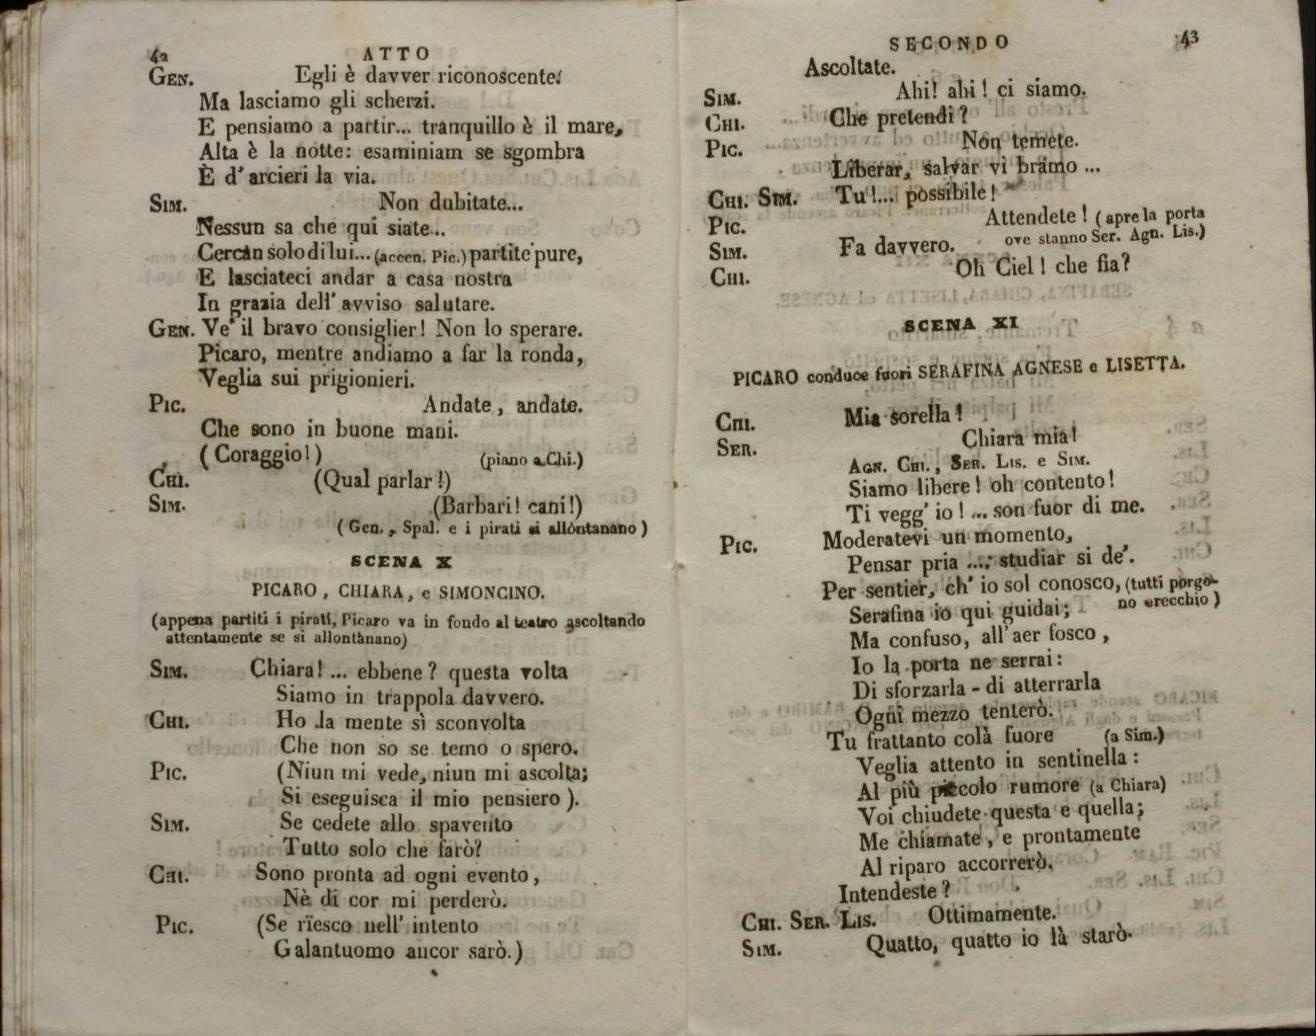 42 ATTO
GEN. Egli è davver riconoscente.
Ma lasciamo gli scherzi.
E pensiamo a partir... tranquillo è il mare,
Alta è la notte: esaminiam se sgombra
È d' arcieri la via.
SIM. Non dubitate...
Nessun sa che qui siate...
Cercan solo di lui... (accen. Pic.) partite pure,
E lasciateci andar a casa nostra
In grazia dell' avviso salutare.
GEN. Ve' il bravo consiglier! Non lo sperare.
Picaro, mentre andiamo a far la ronda,
Veglia sui prigionieri.
PIC. Andate, andate.
Che sono in buone mani.
(Coraggio!) (piano a Chi.)
CHI. (Qual parlar!)
SIM. (Barbari! cani!)
(Gen., Spal. e i pirati si allontanano)
SCENA X
PICARO, CHIARA, e SIMONCINO.
(appena partiti i pirati, Picaro va in fondo al teatro ascoltando
attentamente se si allontànano)
SIM. Chiara!... ebbene? questa volta
Siamo in trappola davvero.
CHI. Ho la mente sì sconvolta
Che non so se temo o spero.
PIC. (Niun mi vede, niun mi ascolta;
Si eseguisca il mio pensiero).
SIM. Se cedete allo spavento
Tutto solo che farò?
CHI. Sono pronta ad ogni evento,
Nè di cor mi perderò.
PIC. (Se rïesco nell' intento
Galantuomo ancor sarò.)
SECONDO 43
Ascoltate.
SIM. Ahi! ahi! ci siamo.
CHI. Che pretendi?
PIC. Non temete.
Liberar, salvar vi bramo...
CHI. SIM. Tu!... possibile!
PIC. Attendete! (apre la porta
ove stanno Ser. Agn. Lis.)
SIM. Fa davvero.
CHI. Oh Ciel! che fia?
SCENA XI
PICARO conduce fuori SERAFINA AGNESE e LISETTA.
CHI. Mia sorella!
SER. Chiara mia!
AGN. CHI., SER. LIS. e SIM.
Siamo libere! oh contento!
Ti vegg' io!... son fuor di me.
PIC. Moderatevi un momento,
Pensar pria .... studiar si de'.
Per sentier, ch' io sol conosco, (tutti porgo-
no orecchio)
Serafina io qui guidai;
Ma confuso, all' aer fosco,
Io la porta ne serrai:
Di sforzarla - di atterrarla
Ogni mezzo tenterò.
Tu frattanto colà fuore (a Sim.)
Veglia attento in sentinella:
Al più piccolo rumore (a Chiara)
Voi chiudete questa e quella;
Me chiamate, e prontamente
Al riparo accorrerò.
Intendeste?
CHI. SER. LIS. Ottimamente.
SIM. Quatto, quatto io là starò.